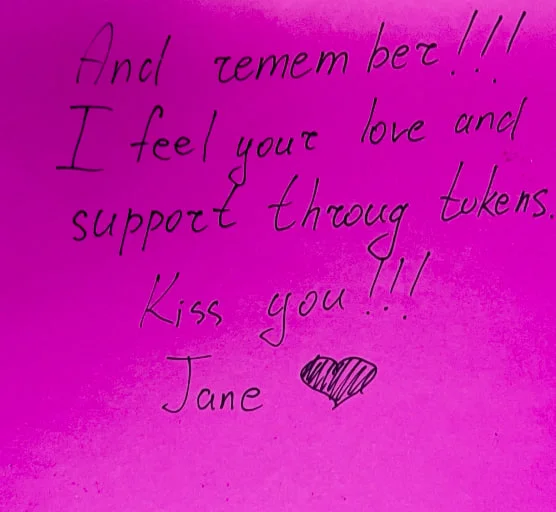 And remember!!!
I feel your love and
support throug tokens.
Kiss you!!!
Jane